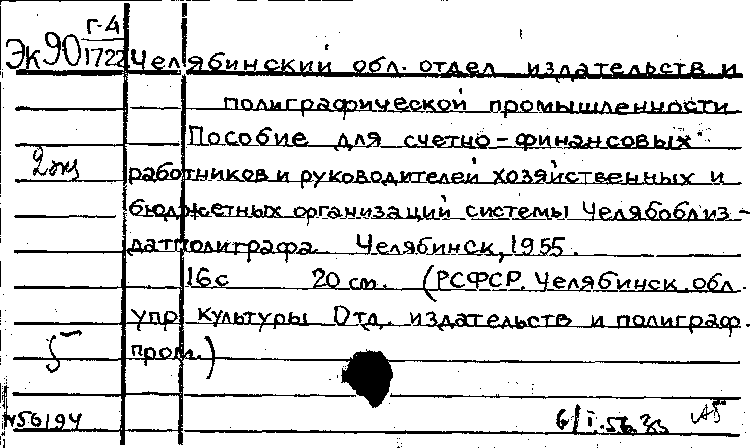 Эк90 Г-4/1722
Челябинский обл. отдел издательств и
полиграфической промышленности
Пособие для счетно-финансовых
2 экз
работников и руководителей хозяйственных и
бюджетных организаций системы Челяблиз-
датполиграфа. Челябинск, 1955.
16с 20 см. (РСФСР. Челябинск. обл.
упр. культуры Отд. издательств и полиграф.
пром.)
5
№56194
6/I-56